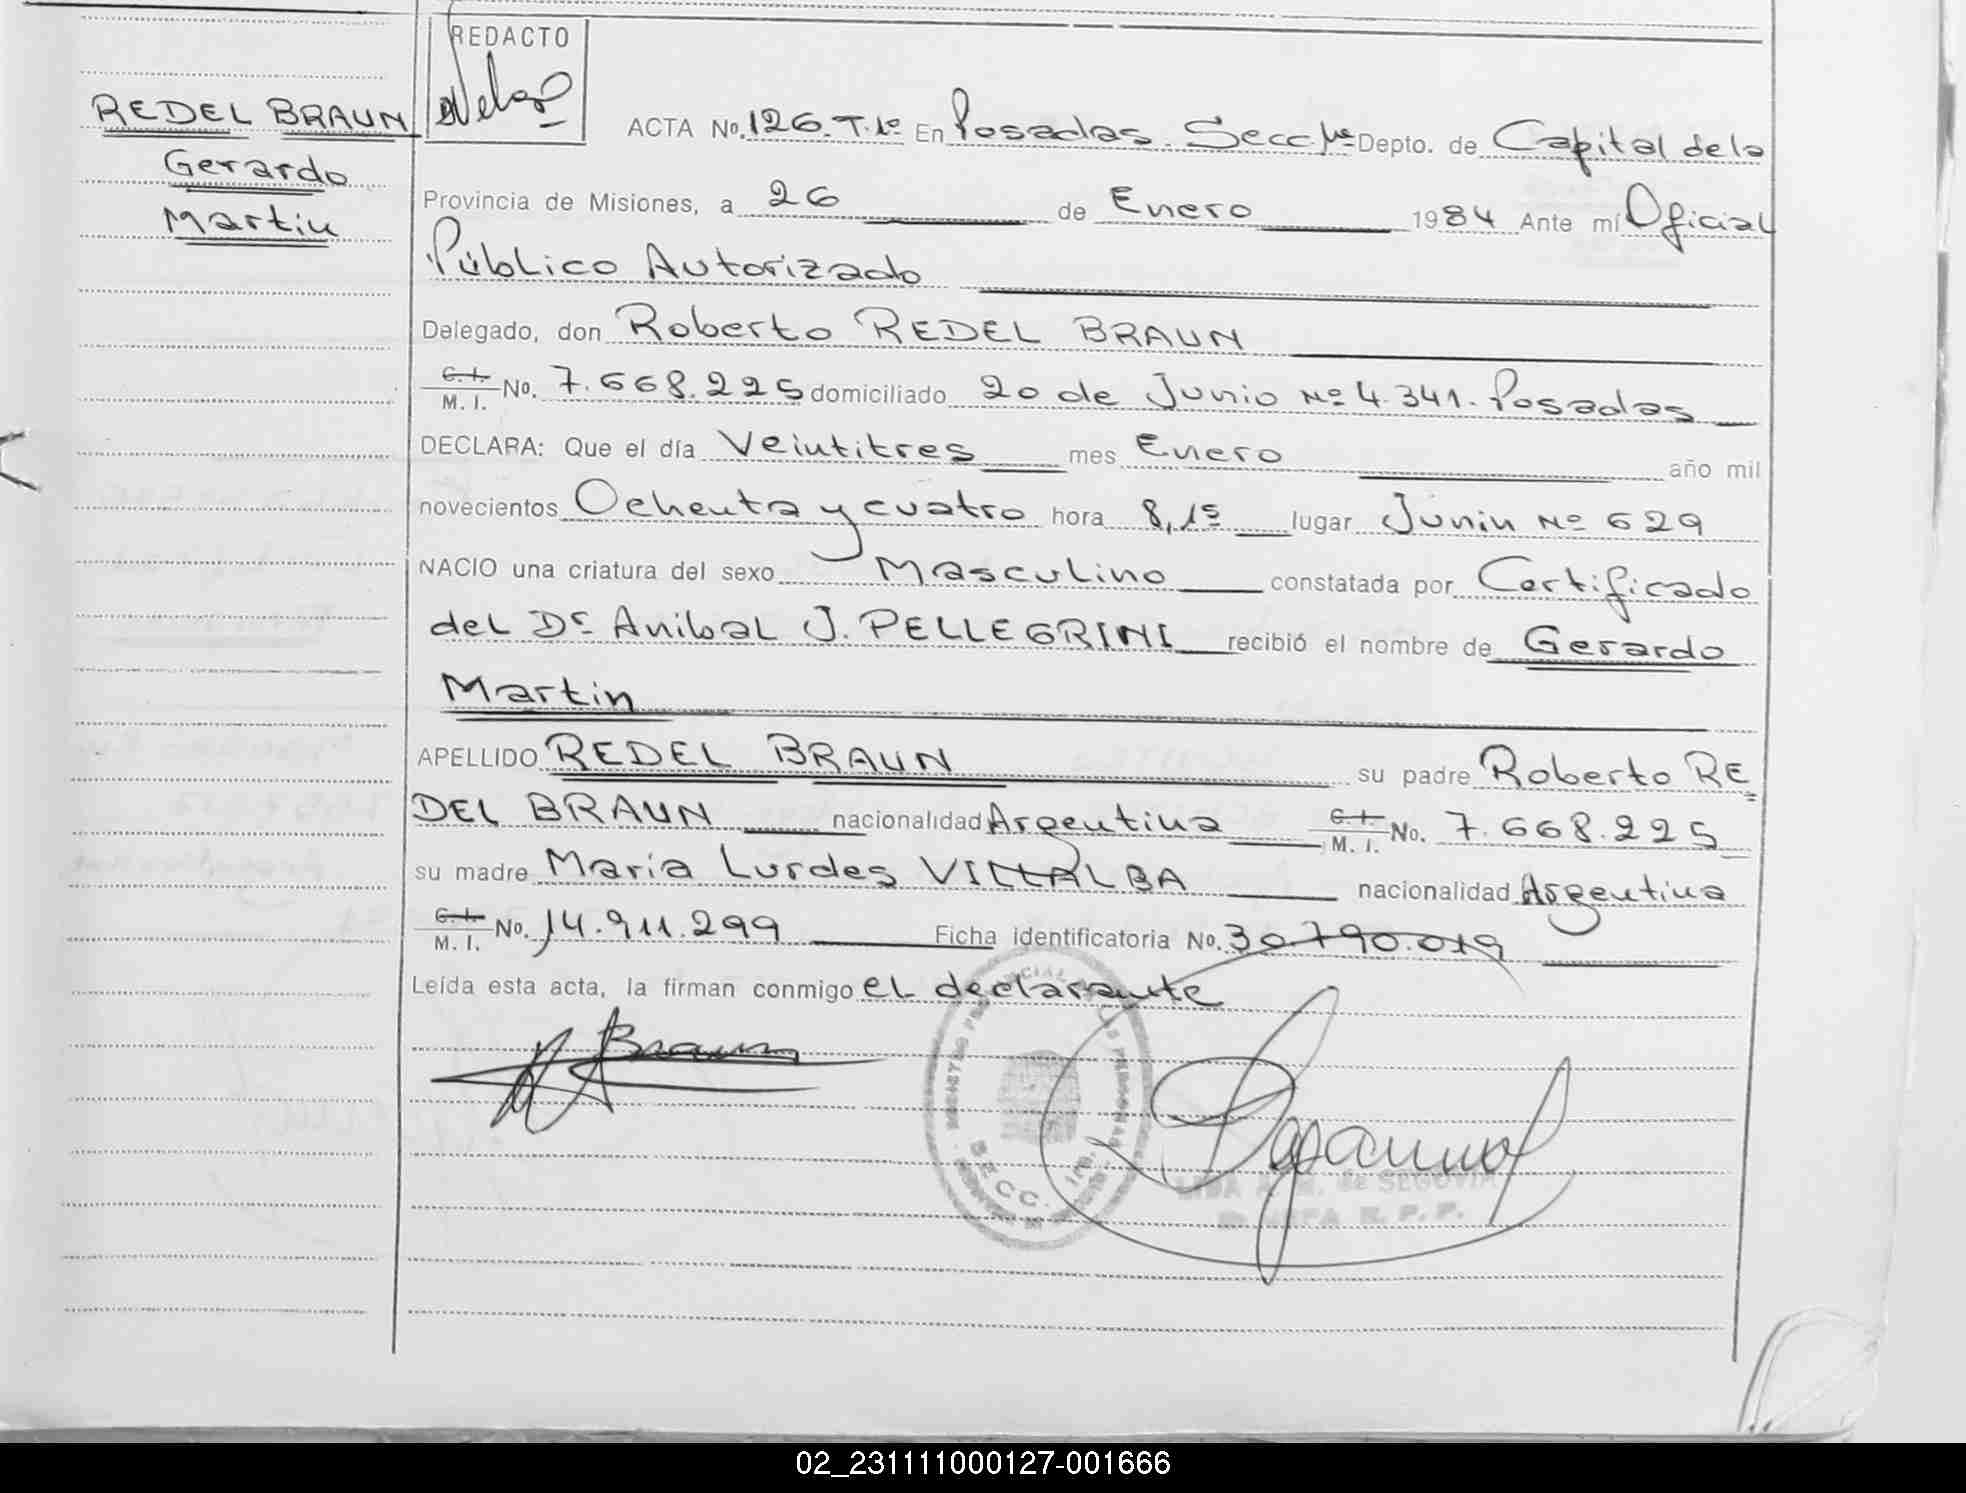 REDACTO
REDEL BRAUN
Gerardo
Martin
ACTA No. 126. T. 1º En Posadas. Secc. 1ª Depto. de Capital de la
Provincia de Misiones, a 26 de Enero 1984 Ante mí Oficial
Público Autorizado
Delegado, don Roberto REDEL BRAUN
C. I. M. I. No. 7.668.225 domiciliado 20 de Junio Nº 4.341. Posadas
DECLARA: Que el día Veintitres mes Enero año mil
novecientos Ochenta y cuatro hora 8,15 lugar Junin Nº 629
NACIO una criatura del sexo Masculino constatada por Certificado
del Dr. Anibal J. PELLEGRINI recibió el nombre de Gerardo
Martin
APELLIDO REDEL BRAUN su padre Roberto RE
DEL BRAUN nacionalidad Argentina C. I. M. I. No. 7.668.225
su madre Maria Lurdes VILLALBA nacionalidad Argentina
C. I. M. I. No. 14.911.299 Ficha identificatoria No. 30.790.019
Leída esta acta, la firman conmigo el declarante
Braun
SECC. 1ra.
A. M. de SEGOVIA
R. P. P.
02_231111000127-001666